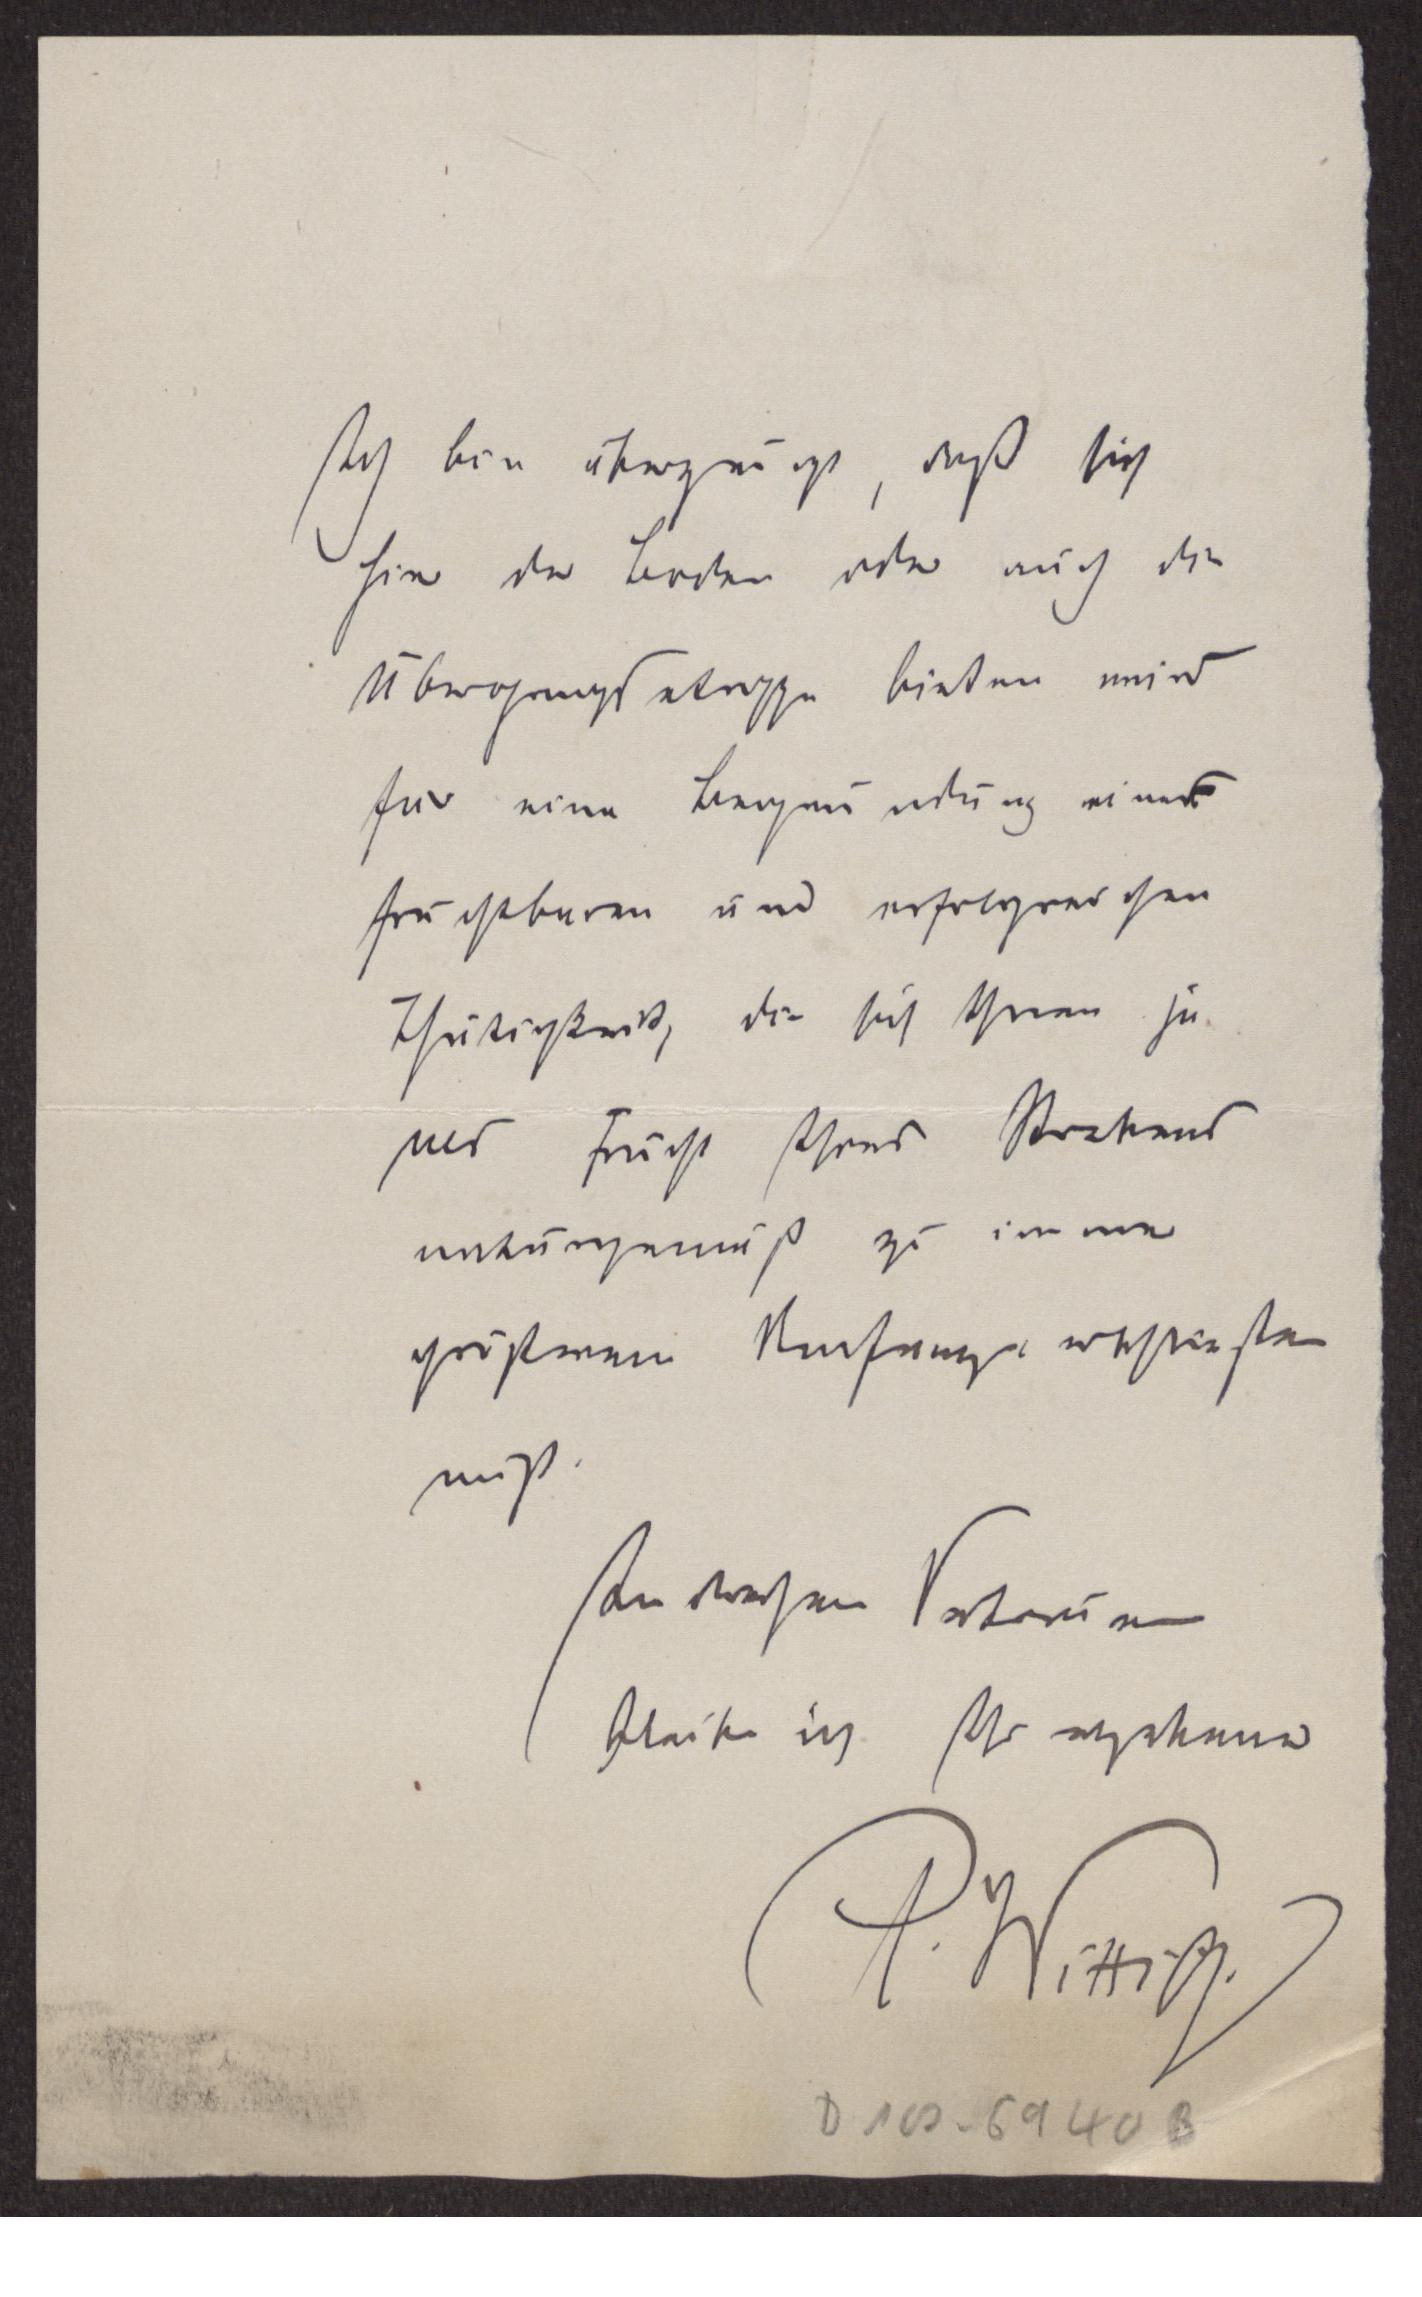 Ich bin überzeugt, daß sich
hier der Boden oder auch die
Übergangsetappe bieten wird
für eine Begründung einer
fruchtbaren und erfolgreichen
Thätigkeit, die sich Ihnen ja
als Frucht Ihres Strebens
naturgemäß zu immer
größerem Umfange erschließen
muß.
In diesem Vertrauen
bleibe ich Ihr ergebener
P. Wittich.
D 102-6940 B